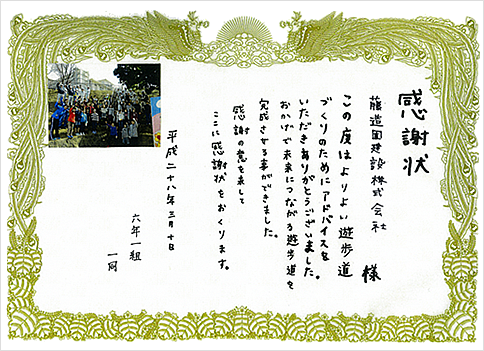 感謝状
藤造園建設株式会社
様
この度はよりよい遊歩道
づくりのためにアドバイスを
いただきありがとうございました。
おかげで未来につながる遊歩道を
完成させる事ができました。
感謝の意を表して
ここに感謝状をおくります。
平成二十八年三月十日
六年一組
一同